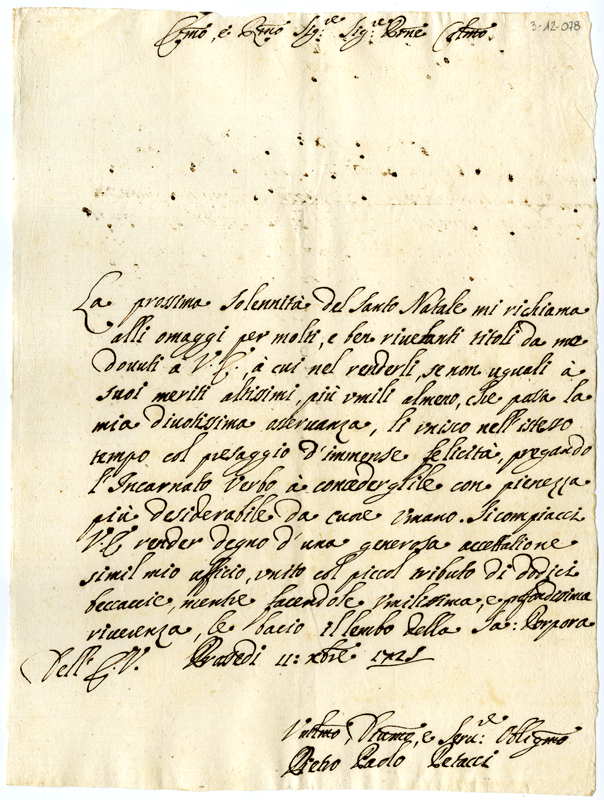 3-12-078
Emo, e Rmo Sig:re Sig:re Prne Colmo
La prossima solennità del Santo Natale mi richiama
alli omaggi per molti, e ben rivelanti titoli da me
dovuti à V. E., à cui nel renderli, se non uguali à
suoi meriti altissimi, più umili almeno, che possa la
mia divotissima osservanza, li unisco nell'istesso
tempo col presaggio d'immense felicità, pregando
l'Incarnato Verbo à concederglile con pienezza
più desiderabile da cuore umano. Si compiacci
V. E. render degno d'una generosa accettatione
simil mio ufficio, unito col piccol tributo di dodici
beccaccie, mentre facendole umilissima, e profondissima
riverenza, le bacio il lembo della Sa: Porpora
Dell' E. V. 11: xbre
Umo Serv:re Obligmo
Pietro Paolo Petacci